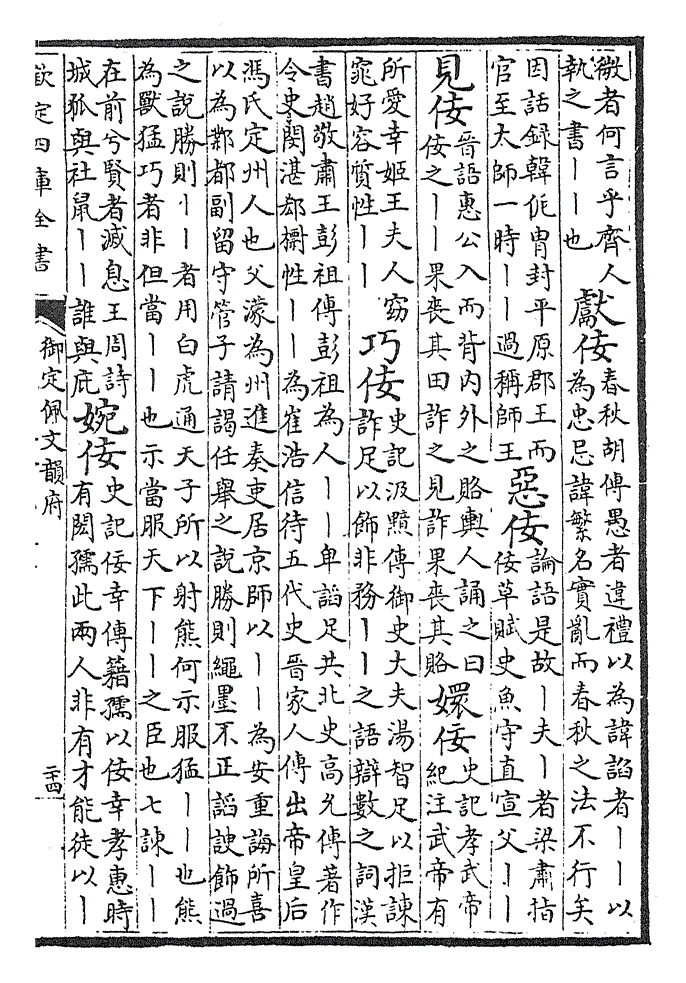 徵者何言乎齊人
執之書丨丨也
獻佞
春秋胡傳愚者違禮以為諱諂者丨丨以
為忠忌諱繁名實亂而春秋之法不行矣
因話録韓侂胄封平原郡王而
官至太師一時丨丨過稱師王
惡佞
論語是故丨夫丨者梁肅指
佞草賦史魚守直宣父丨丨
見佞
晉語惠公入而背内外之賂輿人誦之曰
佞之丨丨果喪其田詐之見詐果喪其賂
嬛佞
史記孝武帝
紀注武帝有
所愛幸姬王夫人窈
窕好容質性丨丨
巧佞
史記汲黯傳御史大夫湯智足以拒諫
詐足以飾非務丨丨之語辯數之詞漢
書趙敬肅王彭祖傳彭祖為人丨丨卑諂足共北史高允傳著作
令史閔湛郄性丨丨為崔浩信待五代史晉家人傳出帝皇后
馮氏定州人也父濛為州進奏吏居京師以丨丨為安重誨所喜
以為鄴都副留守管子請謁任舉之說勝則繩墨不正諂諛飾過
之說勝則丨丨者用白虎通天子所以射熊何示服猛丨丨也熊
為獸猛巧者非但當丨丨也示當服天下丨丨之臣也七諫丨丨
在前兮賢者滅息王周詩
城狐與社鼠丨丨誰與庇
婉佞
史記佞幸傳籍孺以佞幸孝惠時
有閎孺此兩人非有才能徒以丨
欽定四庫全書
御定佩文韻府
二十四